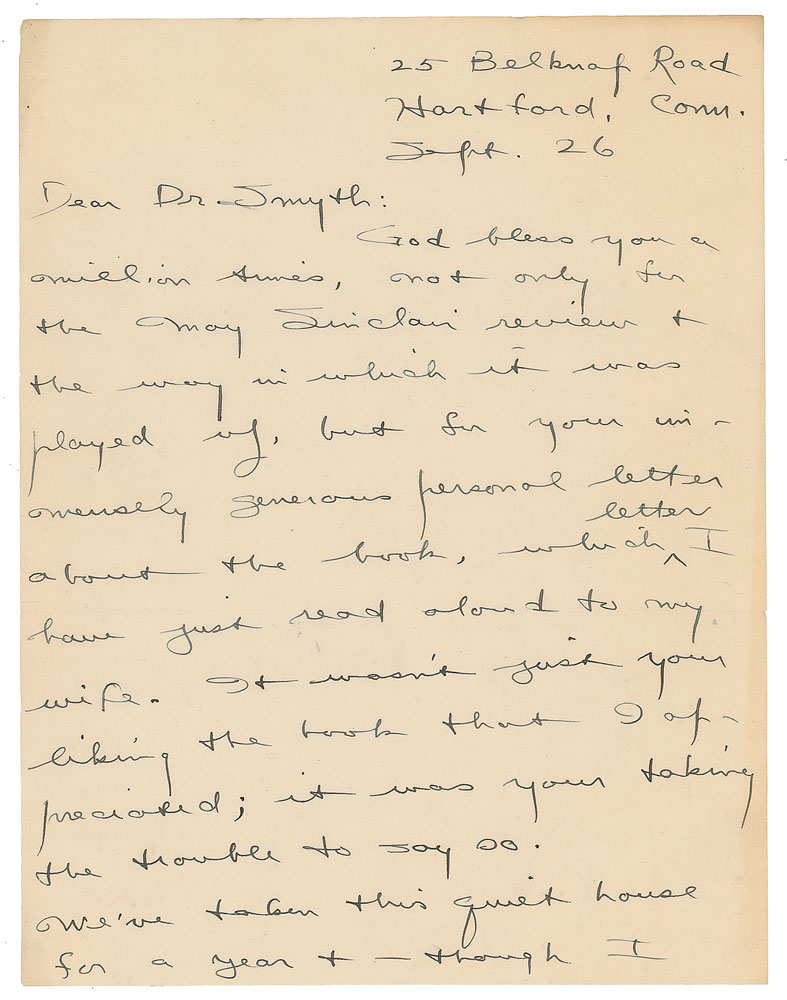 25 Belknap Road
Hartford, Conn.
Sept. 26
Dear Dr Smyth:
God bless you a
million times, not only for
the May Sinclair review +
the way in which it was
played up, but for your im-
mensely generous personal letter
letter
about the book, which ^ I
have just read aloud to my
wife. It wasn't just your
liking the book that I ap-
preciated; it was your taking
the trouble to say so.
We've taken this quiet house
for a year + — though I